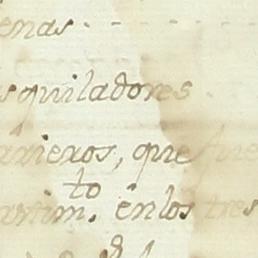 enas
squiladores
arrieros, que fue
to
artim. en los tres